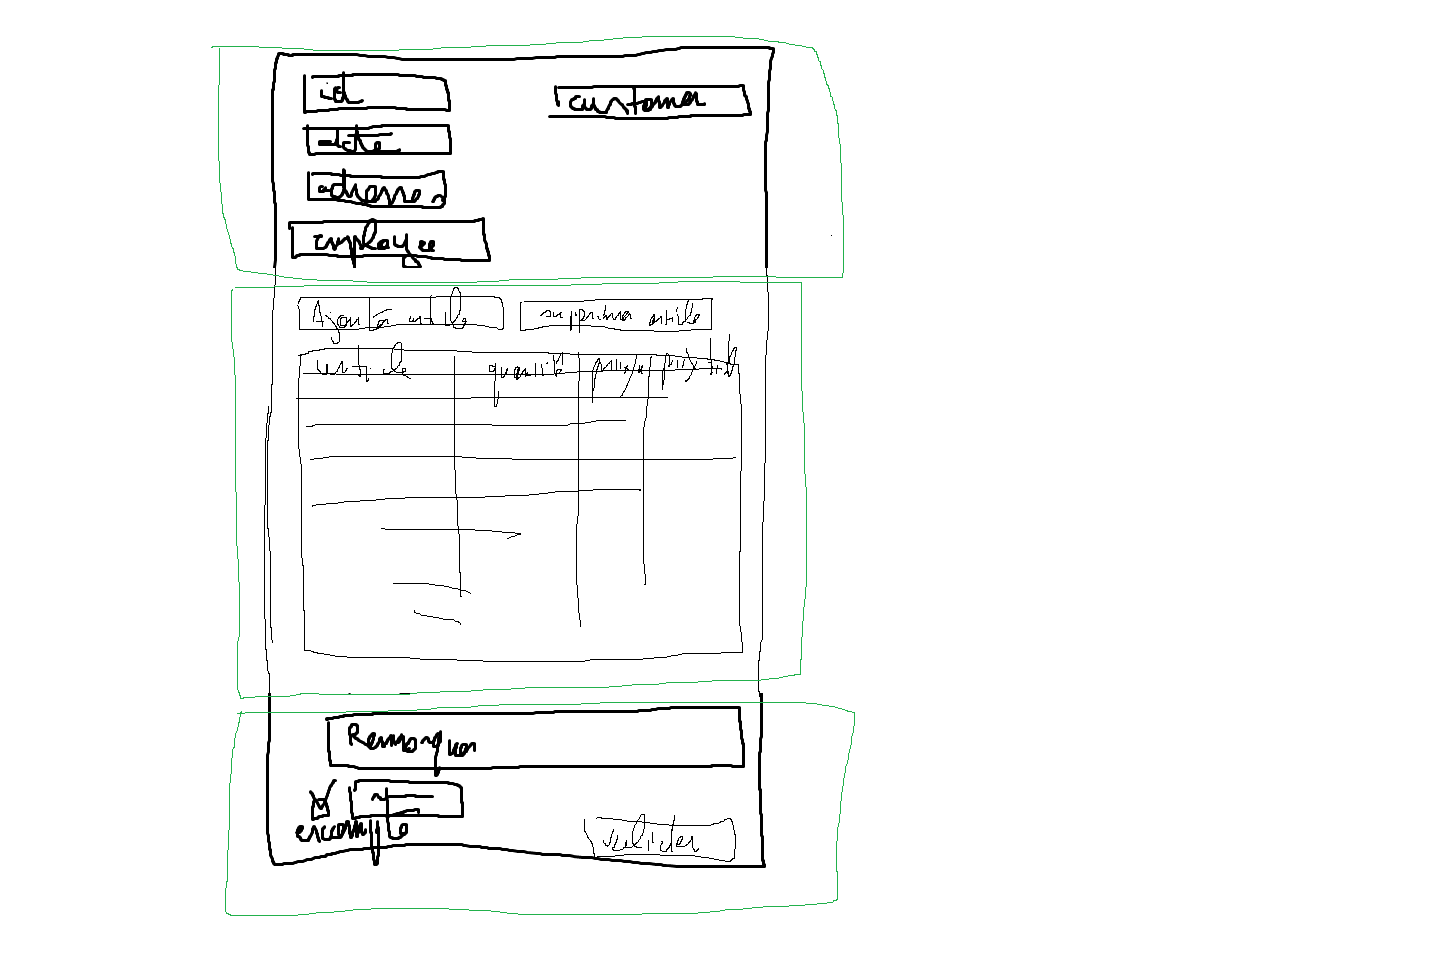 id
customer
date
adresse
employee
Ajouter article
supprimer article
article quantité prix/u prix tot
Remarque
escompte
valider